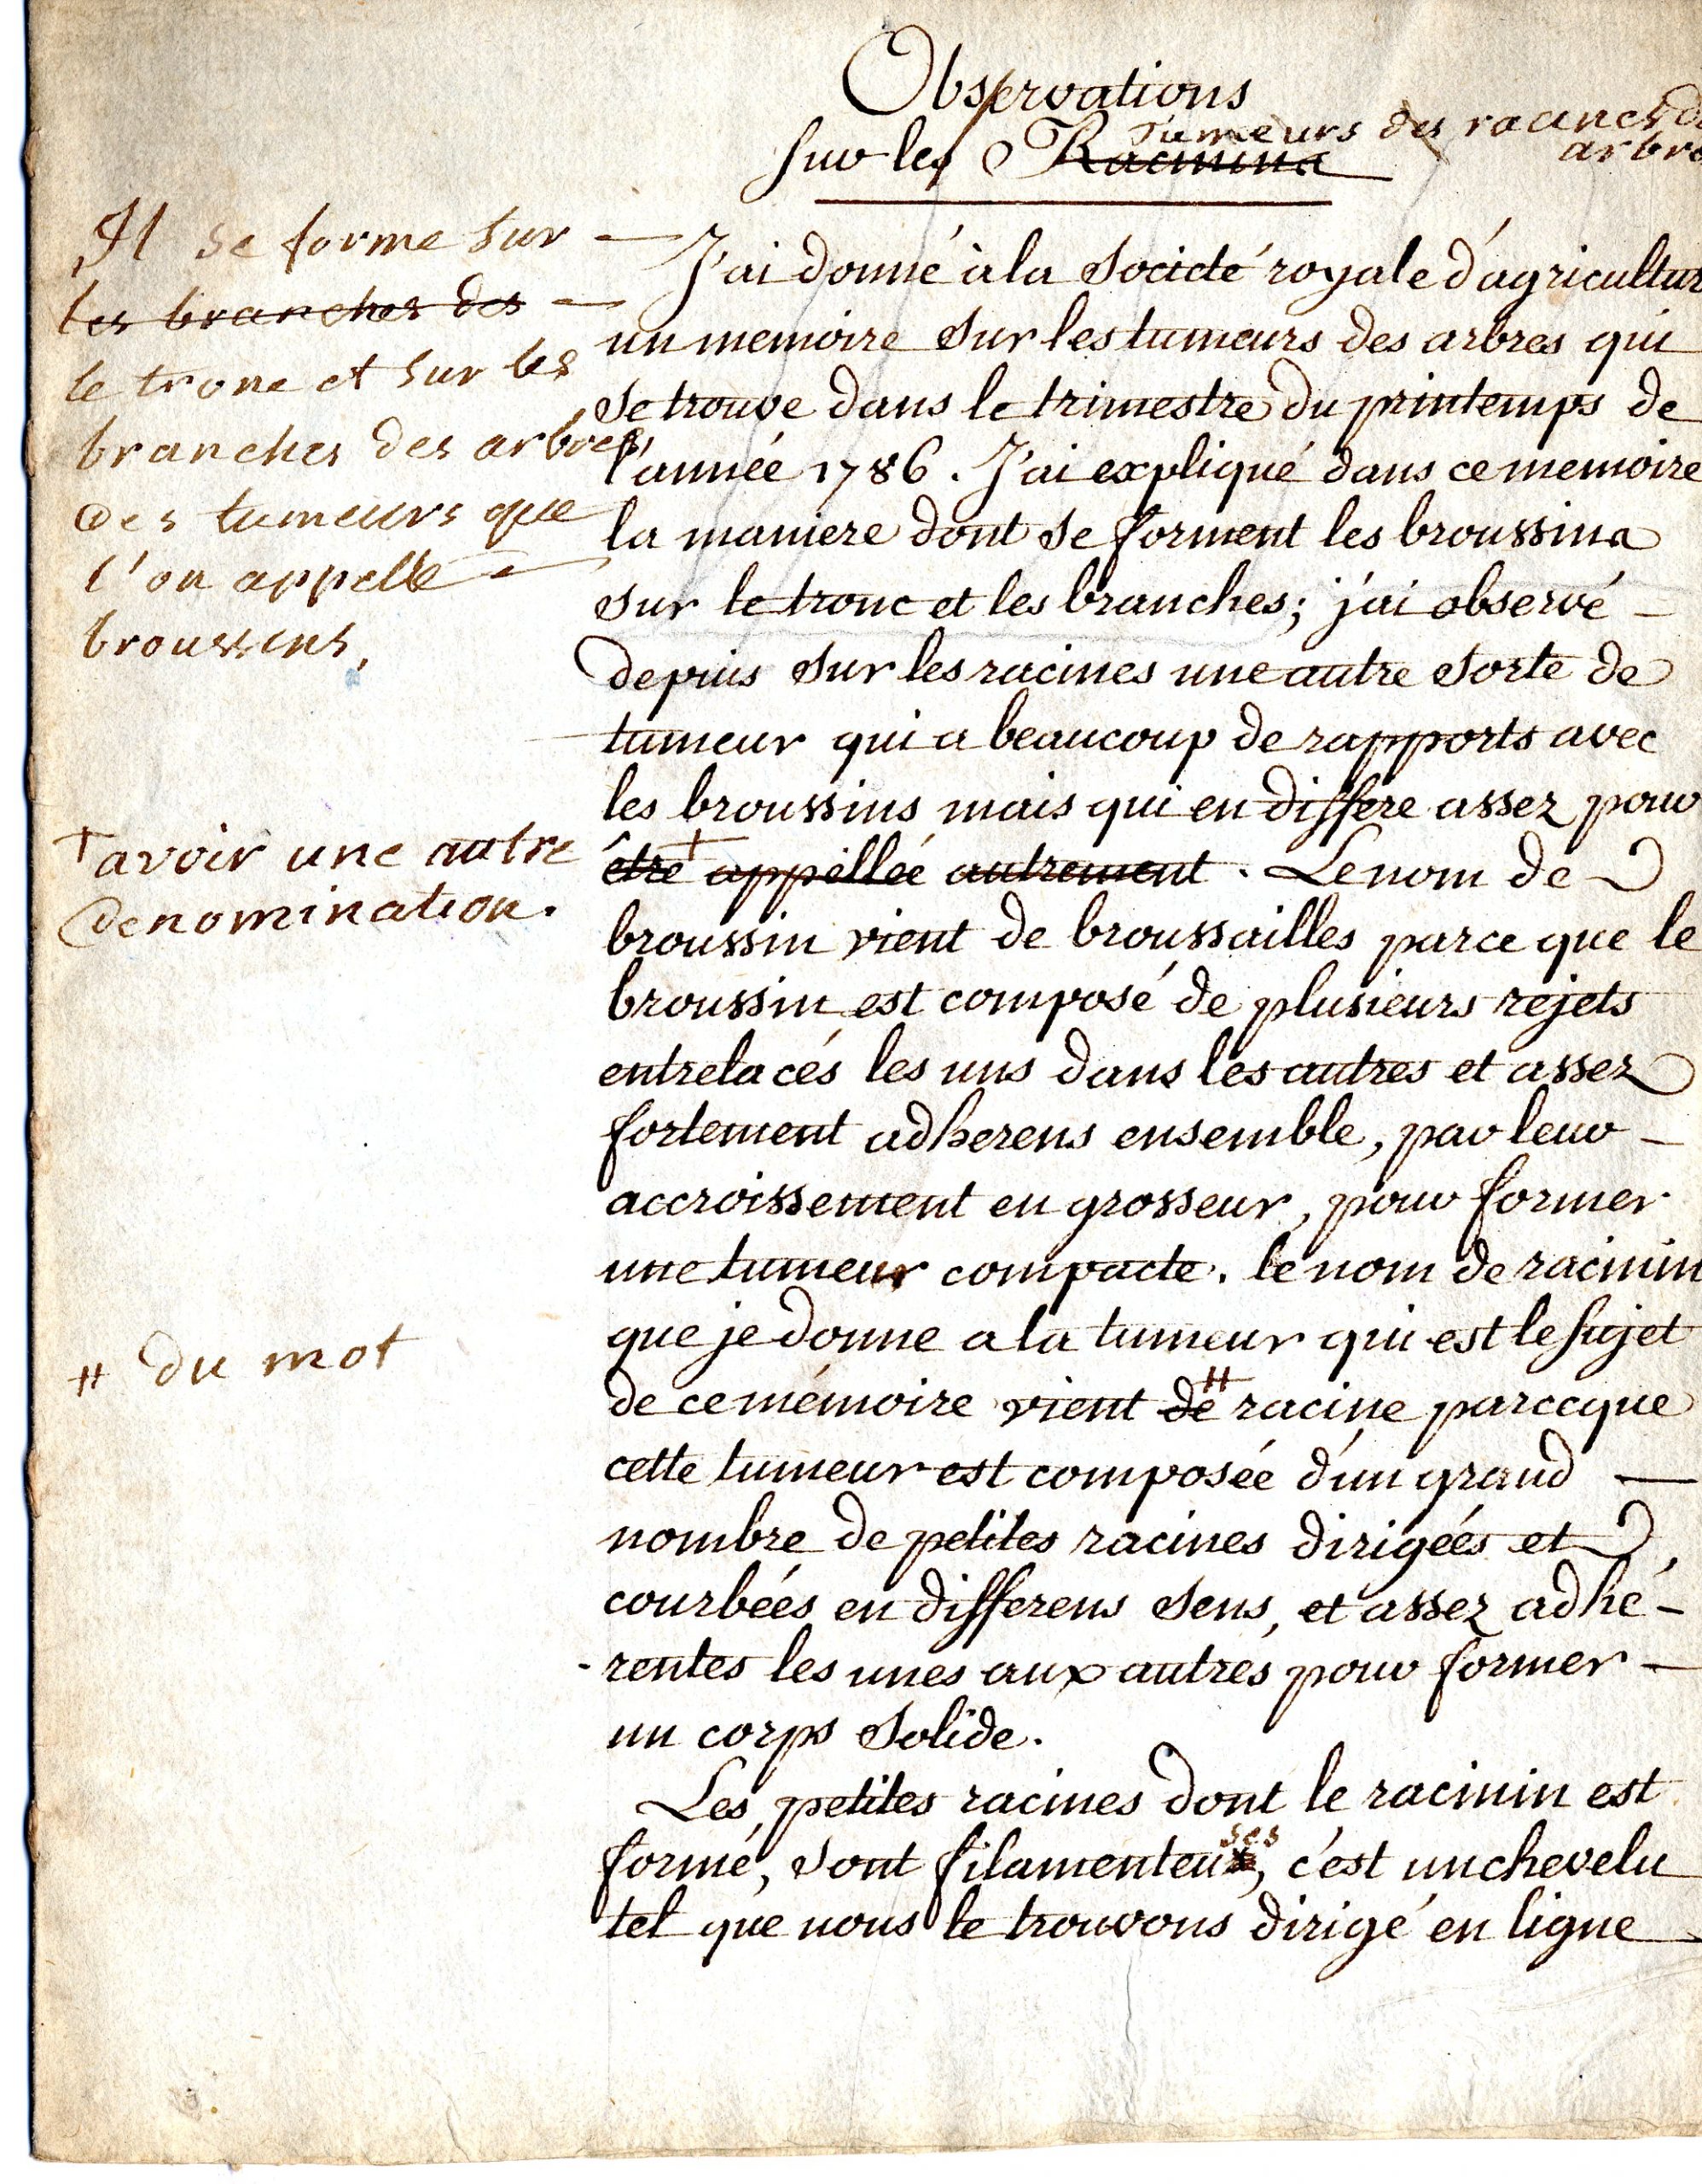 Observations
Sur les Racinins
Tumeurs des racines d
arbre
Il se forme sur
les branches des
le tronc et sur les
branches des arbres
des tumeurs que
l'on appelle
broussins,
J'ai donné à la Societé royale d'agricultur
un memoire sur les tumeurs des arbres qui
se trouve dans le trimestre du printemps de
l'année 1786. J'ai expliqué dans ce memoire
la maniere dont se forment les broussins
sur le tronc et les branches; j'ai observé -
depuis sur les racines une autre sorte de
tumeur qui a beaucoup de rapports avec
les broussins mais qui en differe assez pour
être + appellée autrement. Le nom de
+ avoir une autre
denomination.
broussin vient de broussailles parce que le
broussin est composé de plusieurs rejets
entrelacés les uns dans les autres et assez
fortement adherens ensemble, par leur -
accroissement en grosseur, pour former
une tumeur compacte. le nom de racinin
que je donne a la tumeur qui est le sujet
de ce mémoire vient de # racine parceque
# du mot
cette tumeur est composée d'un grand -
nombre de petites racines dirigées et
courbées en differens sens, et assez adhé-
-rentes les unes aux autres pour former -
un corps solide.
Les petites racines dont le racinin est
formé, sont filamenteuses, c'est un chevelu
tel que nous le trouvons dirigé en ligne